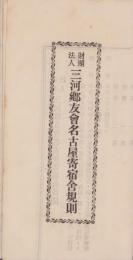 財團法人 三河鄕友會名古屋寄宿舍規則